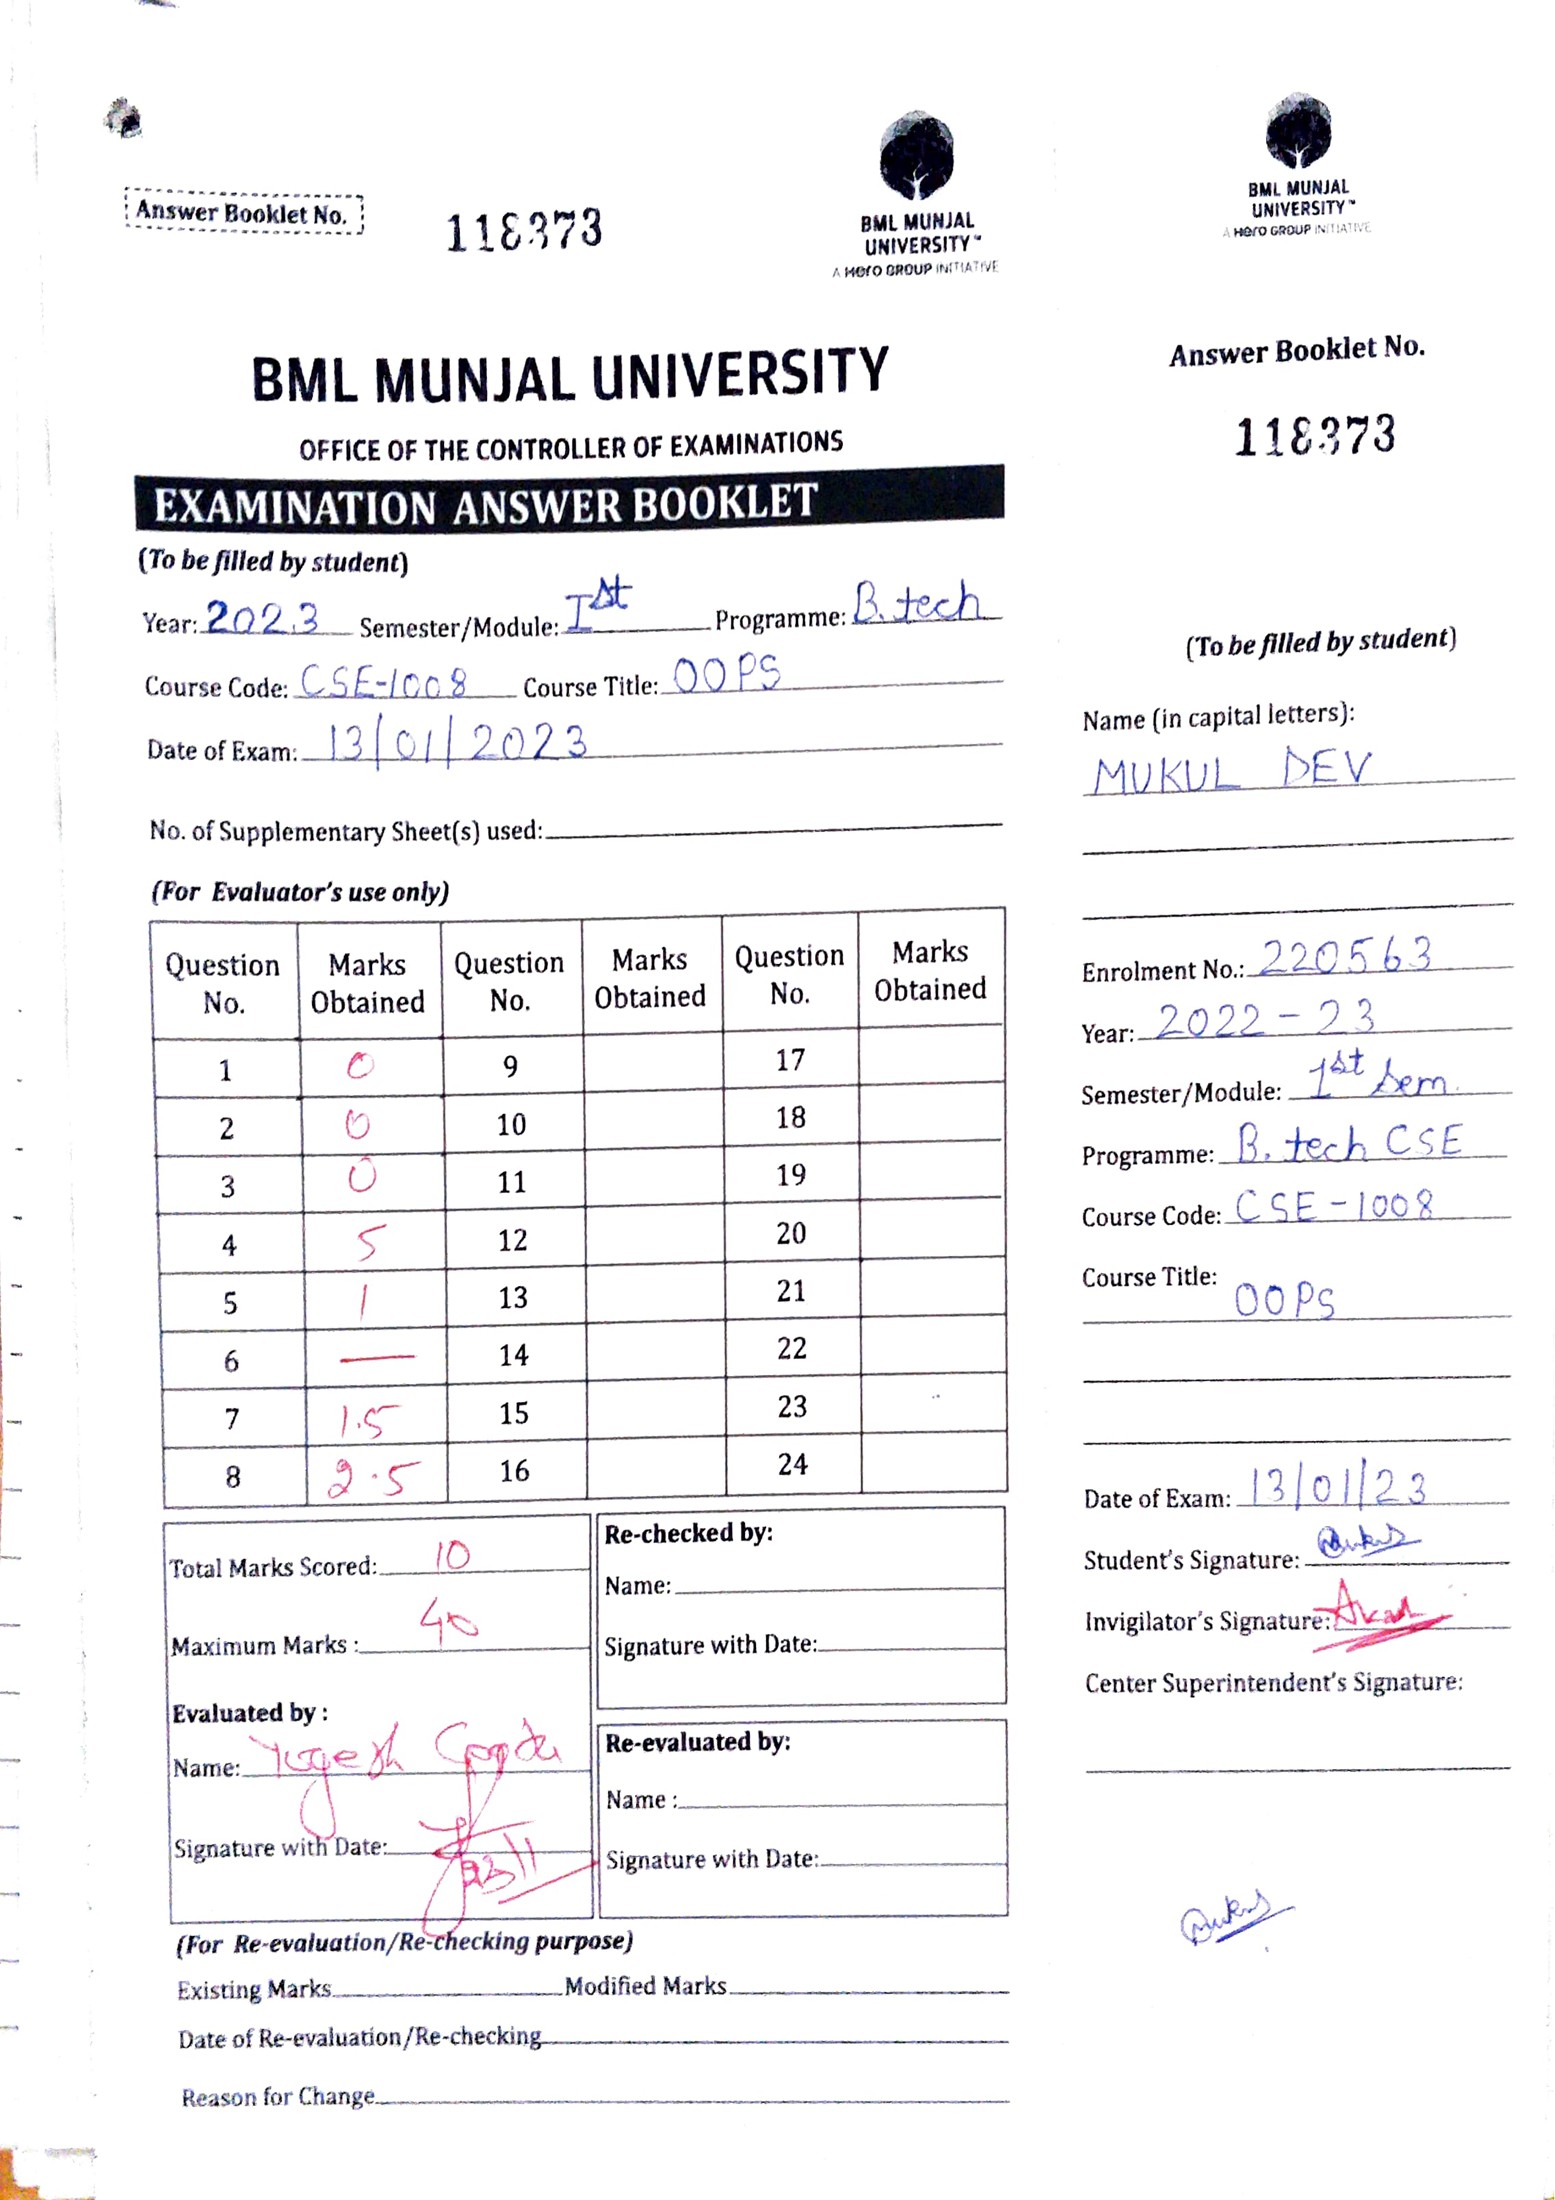 Answer Booklet No.
118373
BML MUNJAL
UNIVERSITY™
A Hero GROUP INITIATIVE
BML MUNJAL UNIVERSITY
OFFICE OF THE CONTROLLER OF EXAMINATIONS
EXAMINATION ANSWER BOOKLET
(To be filled by student)
Year: 2023 Semester/Module: Ist Programme: B.tech
Course Code: CSE-1008 Course Title: OOPS
Date of Exam: 13/01/2023
No. of Supplementary Sheet(s) used:
(For Evaluator's use only)
Question No. Marks Obtained Question No. Marks Obtained Question No. Marks Obtained
1 0 9 17
2 0 10 18
3 0 11 19
4 5 12 20
5 1 13 21
6 — 14 22
7 1.5 15 23
8 2.5 16 24
Total Marks Scored: 10
Maximum Marks : 40
Evaluated by :
Name: Yogesh
Signature with Date:
Re-checked by:
Name:
Signature with Date:
Re-evaluated by:
Name :
Signature with Date:
(For Re-evaluation/Re-checking purpose)
Existing Marks Modified Marks
Date of Re-evaluation/Re-checking
Reason for Change
BML MUNJAL
UNIVERSITY™
A Hero GROUP INITIATIVE
Answer Booklet No.
118373
(To be filled by student)
Name (in capital letters):
MUKUL DEV
Enrolment No.: 220563
Year: 2022-23
Semester/Module: 1st Sem.
Programme: B.tech CSE
Course Code: CSE-1008
Course Title:
OOPS
Date of Exam: 13/01/23
Student's Signature:
Invigilator's Signature:
Center Superintendent's Signature: